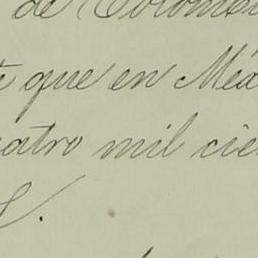 de Colombia
que en Méx
atro mil cien